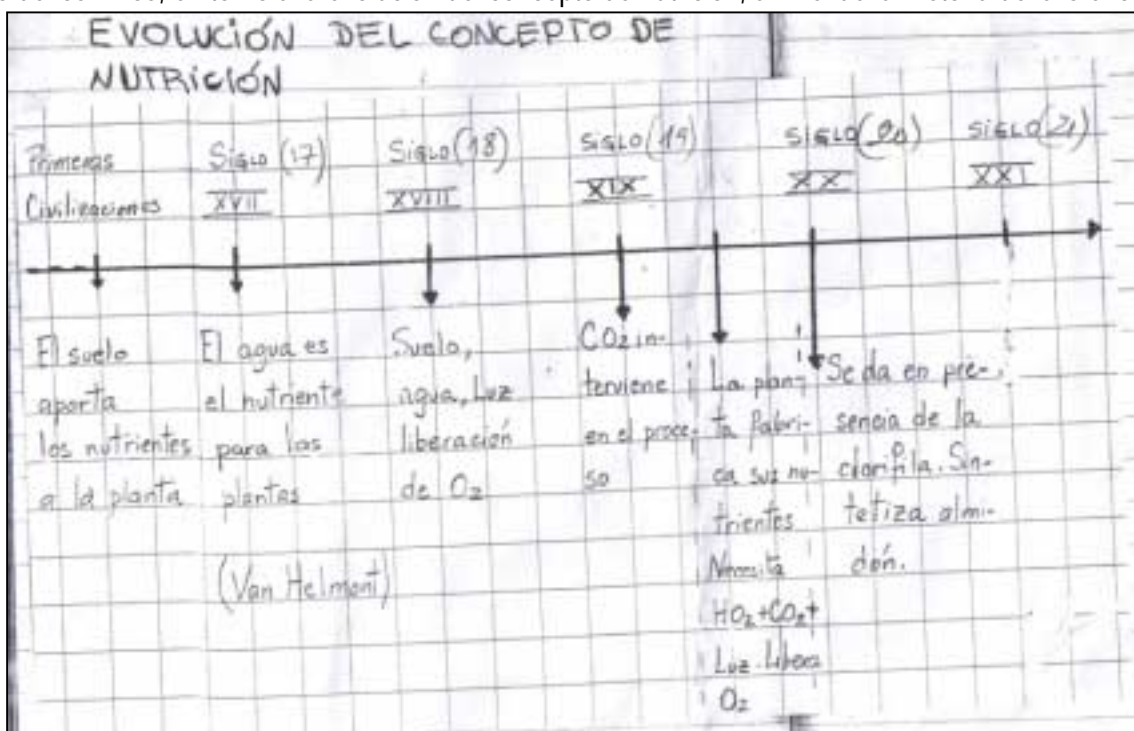 EVOLUCIÓN DEL CONCEPTO DE
NUTRICIÓN
Primeras
Civilizaciones
SIGLO (17)
XVII
SIGLO (18)
XVIII
SIGLO (19)
XIX
SIGLO (20)
XX
SIGLO (21)
XXI
El suelo
aporta
los nutrientes
a la planta
El agua es
el nutriente
para las
plantas
(Van Helmont)
Suelo,
agua, Luz
liberación
de O2
CO2 in-
terviene
en el proce-
so
La plan-
ta fabri-
ca sus nu-
trientes
Necesita
HO2+CO2+
Luz. Libera
O2
Se da en pre-
sencia de la
clorifila. Sin-
tetiza almi-
dón.